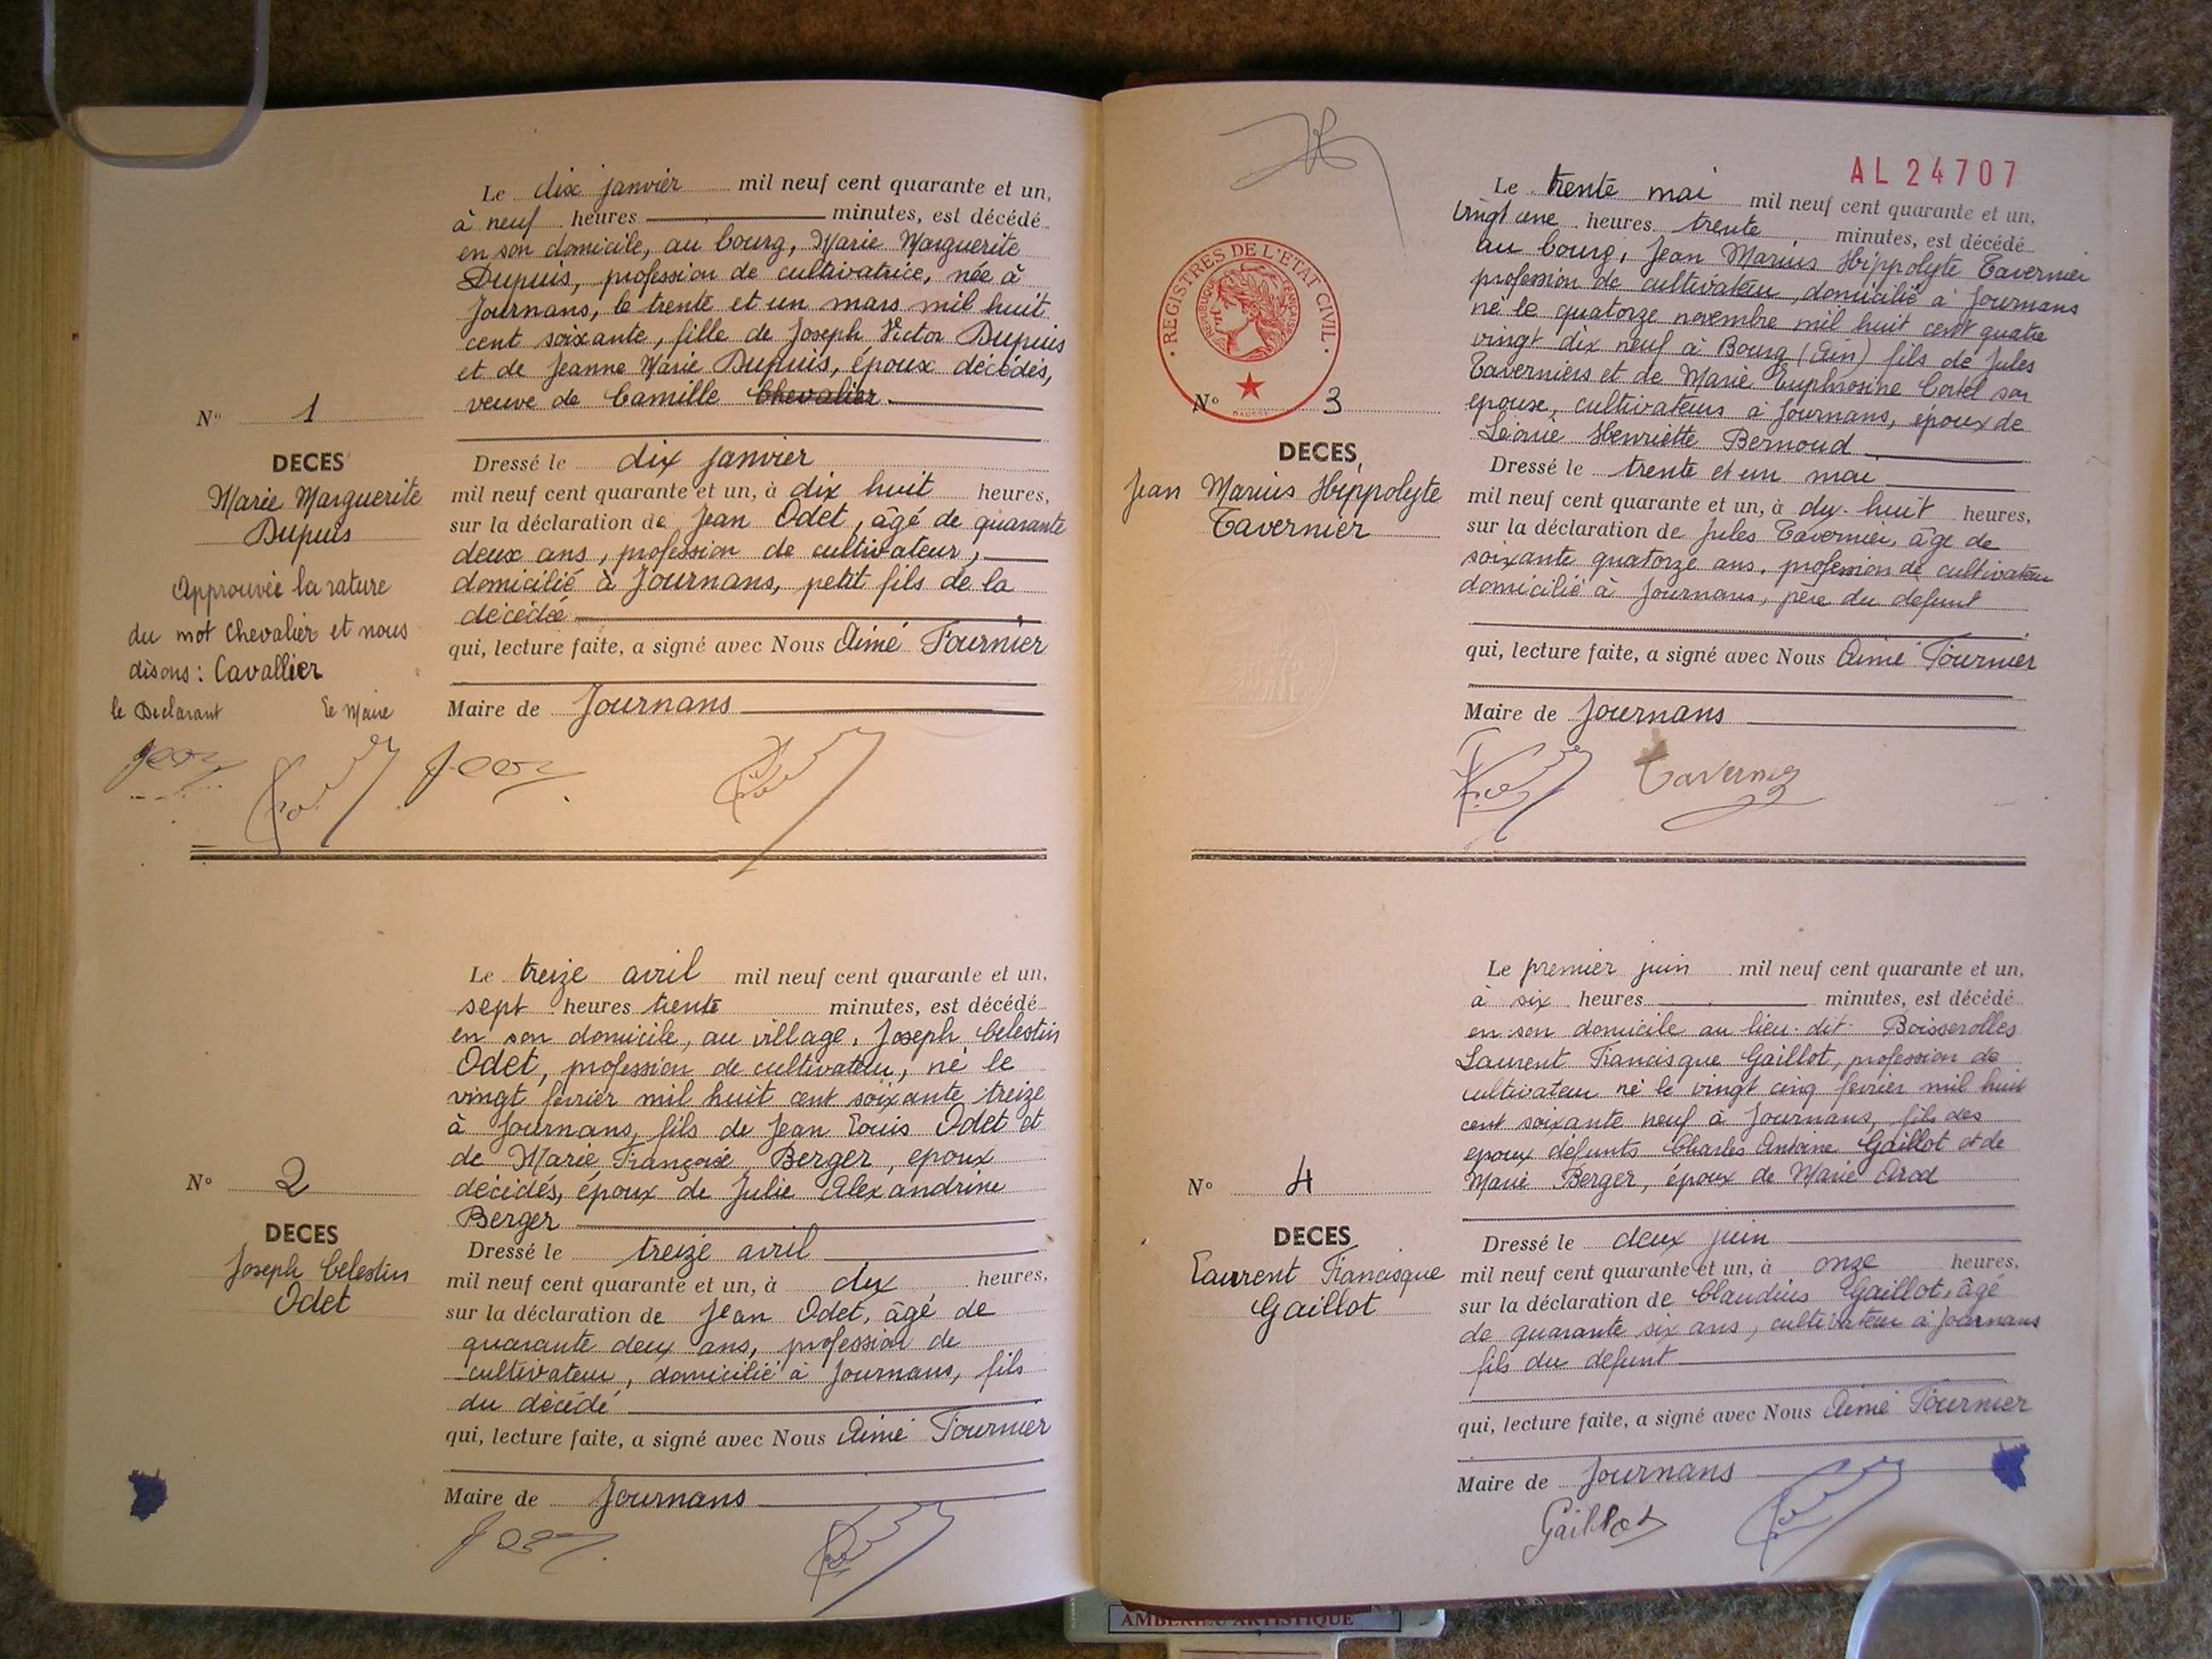 Le dix janvier mil neuf cent quarante et un,
à neuf heures minutes, est décédé
en son domicile, au bourg, Marie Marguerite
Dupuis, profession de cultivatrice, née à
Journans, le trente et un mars mil huit
cent soixante, fille de Joseph Victor Dupuis
et de Jeanne Marie Dupuis, époux décédés,
veuve de Camille Chevalier
Nº 1
DECES
Marie Marguerite
Dupuis
Approuvée la rature
du mot Chevalier et nous
disons : Cavallier
le Declarant le Maire
Dressé le dix janvier
mil neuf cent quarante et un, à dix huit heures,
sur la déclaration de Jean Odet, âgé de quarante
deux ans, profession de cultivateur,
domicilié à Journans, petit fils de la
décédée
qui, lecture faite, a signé avec Nous Aimé Fournier
Maire de Journans
Le treize avril mil neuf cent quarante et un,
sept heures trente minutes, est décédé
en son domicile, au village, Joseph Celestin
Odet, profession de cultivateur, né le
vingt février mil huit cent soixante treize
à Journans, fils de Jean Louis Odet et
de Marie Françoise Berger, epoux
décédés, époux de Julie Alexandrine
Berger
Nº 2
DECES
Joseph Celestin
Odet
Dressé le treize avril
mil neuf cent quarante et un, à dix heures,
sur la déclaration de Jean Odet, âgé de
quarante deux ans, profession de
cultivateur, domicilié à Journans, fils
du décédé
qui, lecture faite, a signé avec Nous Aimé Fournier
Maire de Journans
AL 24707
Le trente mai mil neuf cent quarante et un,
vingt une heures trente minutes, est décédé
au bourg, Jean Marius Hippolyte Tavernier
profession de cultivateur, domicilié à Journans
né le quatorze novembre mil huit cent quatre
vingt dix neuf à Bourg (Ain) fils de Jules
Taverniers et de Marie Euphrosine son
epouse, cultivateurs à Journans, époux de
Léonie Henriette Bernoud
REGISTRES DE L'ETAT CIVIL
Nº 3
DECES
Jean Marius Hippolyte
Tavernier
Dressé le trente et un mai
mil neuf cent quarante et un, à dix-huit heures,
sur la déclaration de Jules Tavernier, âge de
soixante quatorze ans, profession de cultivateur
domicilié à Journans, père du defunt
qui, lecture faite, a signé avec Nous Aimé Fournier
Maire de Journans
Tavernier
Le premier juin mil neuf cent quarante et un,
à six heures minutes, est décédé
en son domicile au lieu-dit Boisserolles
Laurent Francisque Gaillot, profession de
cultivateur né le vingt cinq fevrier mil huit
cent soixante neuf à Journans, fils des
epoux défunts Charles Antoine Gaillot et de
Marie Berger, époux de Marie Arod
Nº 4
DECES
Laurent Francisque
Gaillot
Dressé le deux juin
mil neuf cent quarante et un, à onze heures,
sur la déclaration de Claudius Gaillot, âgé
de quarante six ans, cultivateur à Journans
fils du défunt
qui, lecture faite, a signé avec Nous Aimé Fournier
Maire de Journans
Gaillot
AMBERIEU ARTISTIQUE